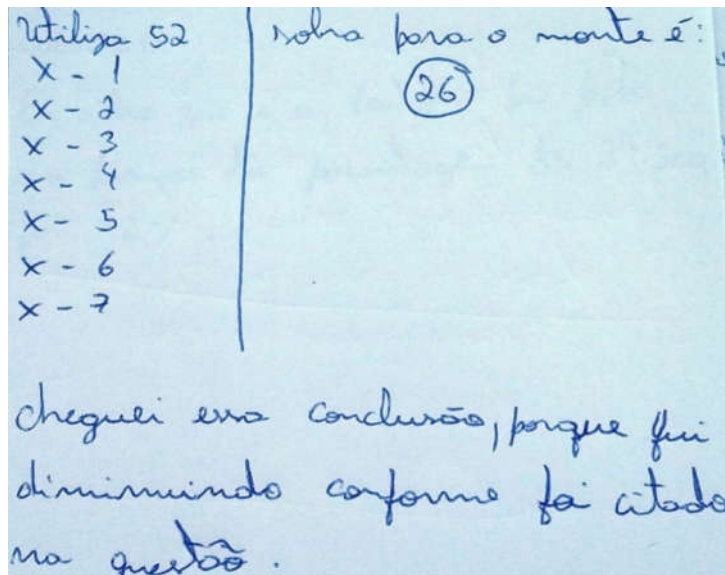 Utiliza 52
X - 1
X - 2
X - 3
X - 4
X - 5
X - 6
X - 7
sobra para o monte é:
26
cheguei essa conclusão, porque fui
diminuindo conforme foi citado
na questão.